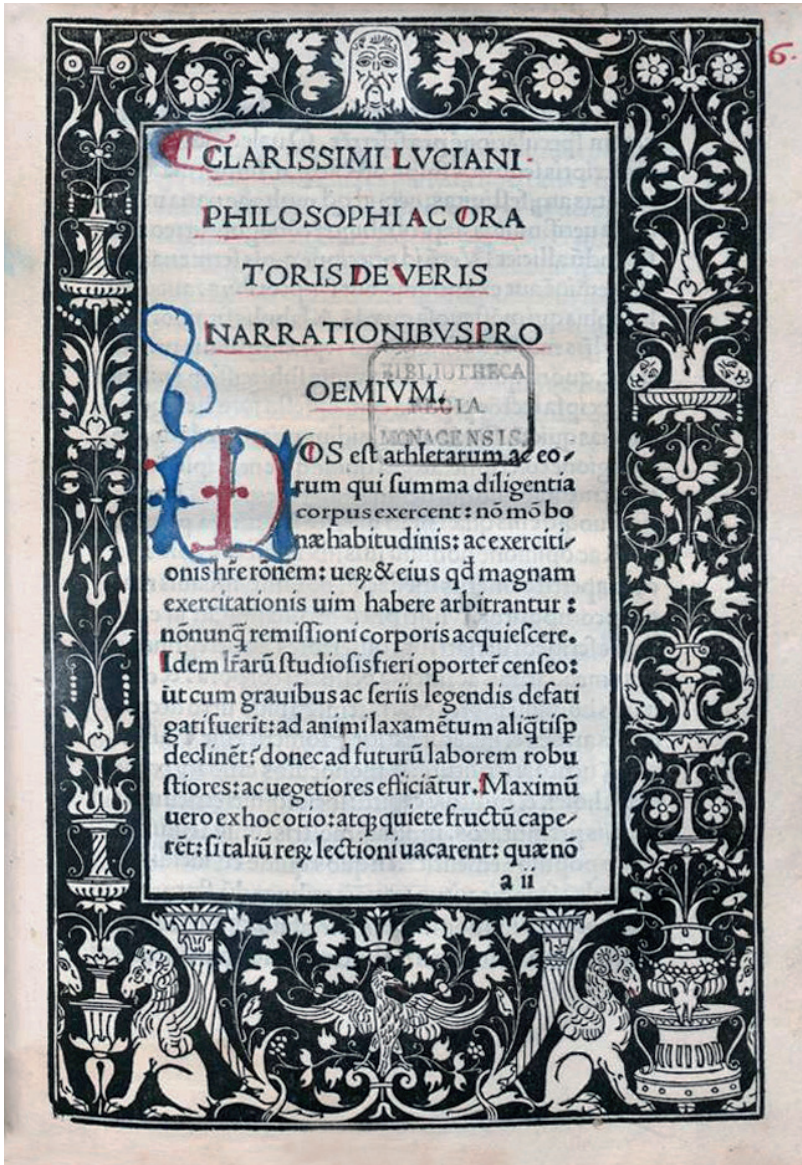 6.
CLARISSIMI LVCIANI
PHILOSOPHI AC ORA
TORIS DE VERIS
NARRATIONIBVS PRO
OEMIVM.
BIBLIOTHECA
REGIA
MONACENSIS.
MOS est athletarum ac eo-
rum qui summa diligentia
corpus exercent: nō mō bo
næ habitudinis: ac exerciti-
onis hr̄e rōnem: ueꝝ & eius qd̄ magnam
exercitationis uim habere arbitrantur:
nōnunq̄ remissioni corporis acquiescere.
Idem lr̄arū studiosis fieri oportet̄ censeo:
ut cum grauibus ac seriis legendis defati
gati fuerīt: ad animi laxamētum aliq̄tisꝑ
declinēt: donec ad futurū laborem robu
stiores: ac uegetiores efficiātur. Maximū
uero ex hoc otio: atqꝫ quiete fructū cape-
rēt: si taliū reꝝ lectioni uacarent: quæ nō
a ii